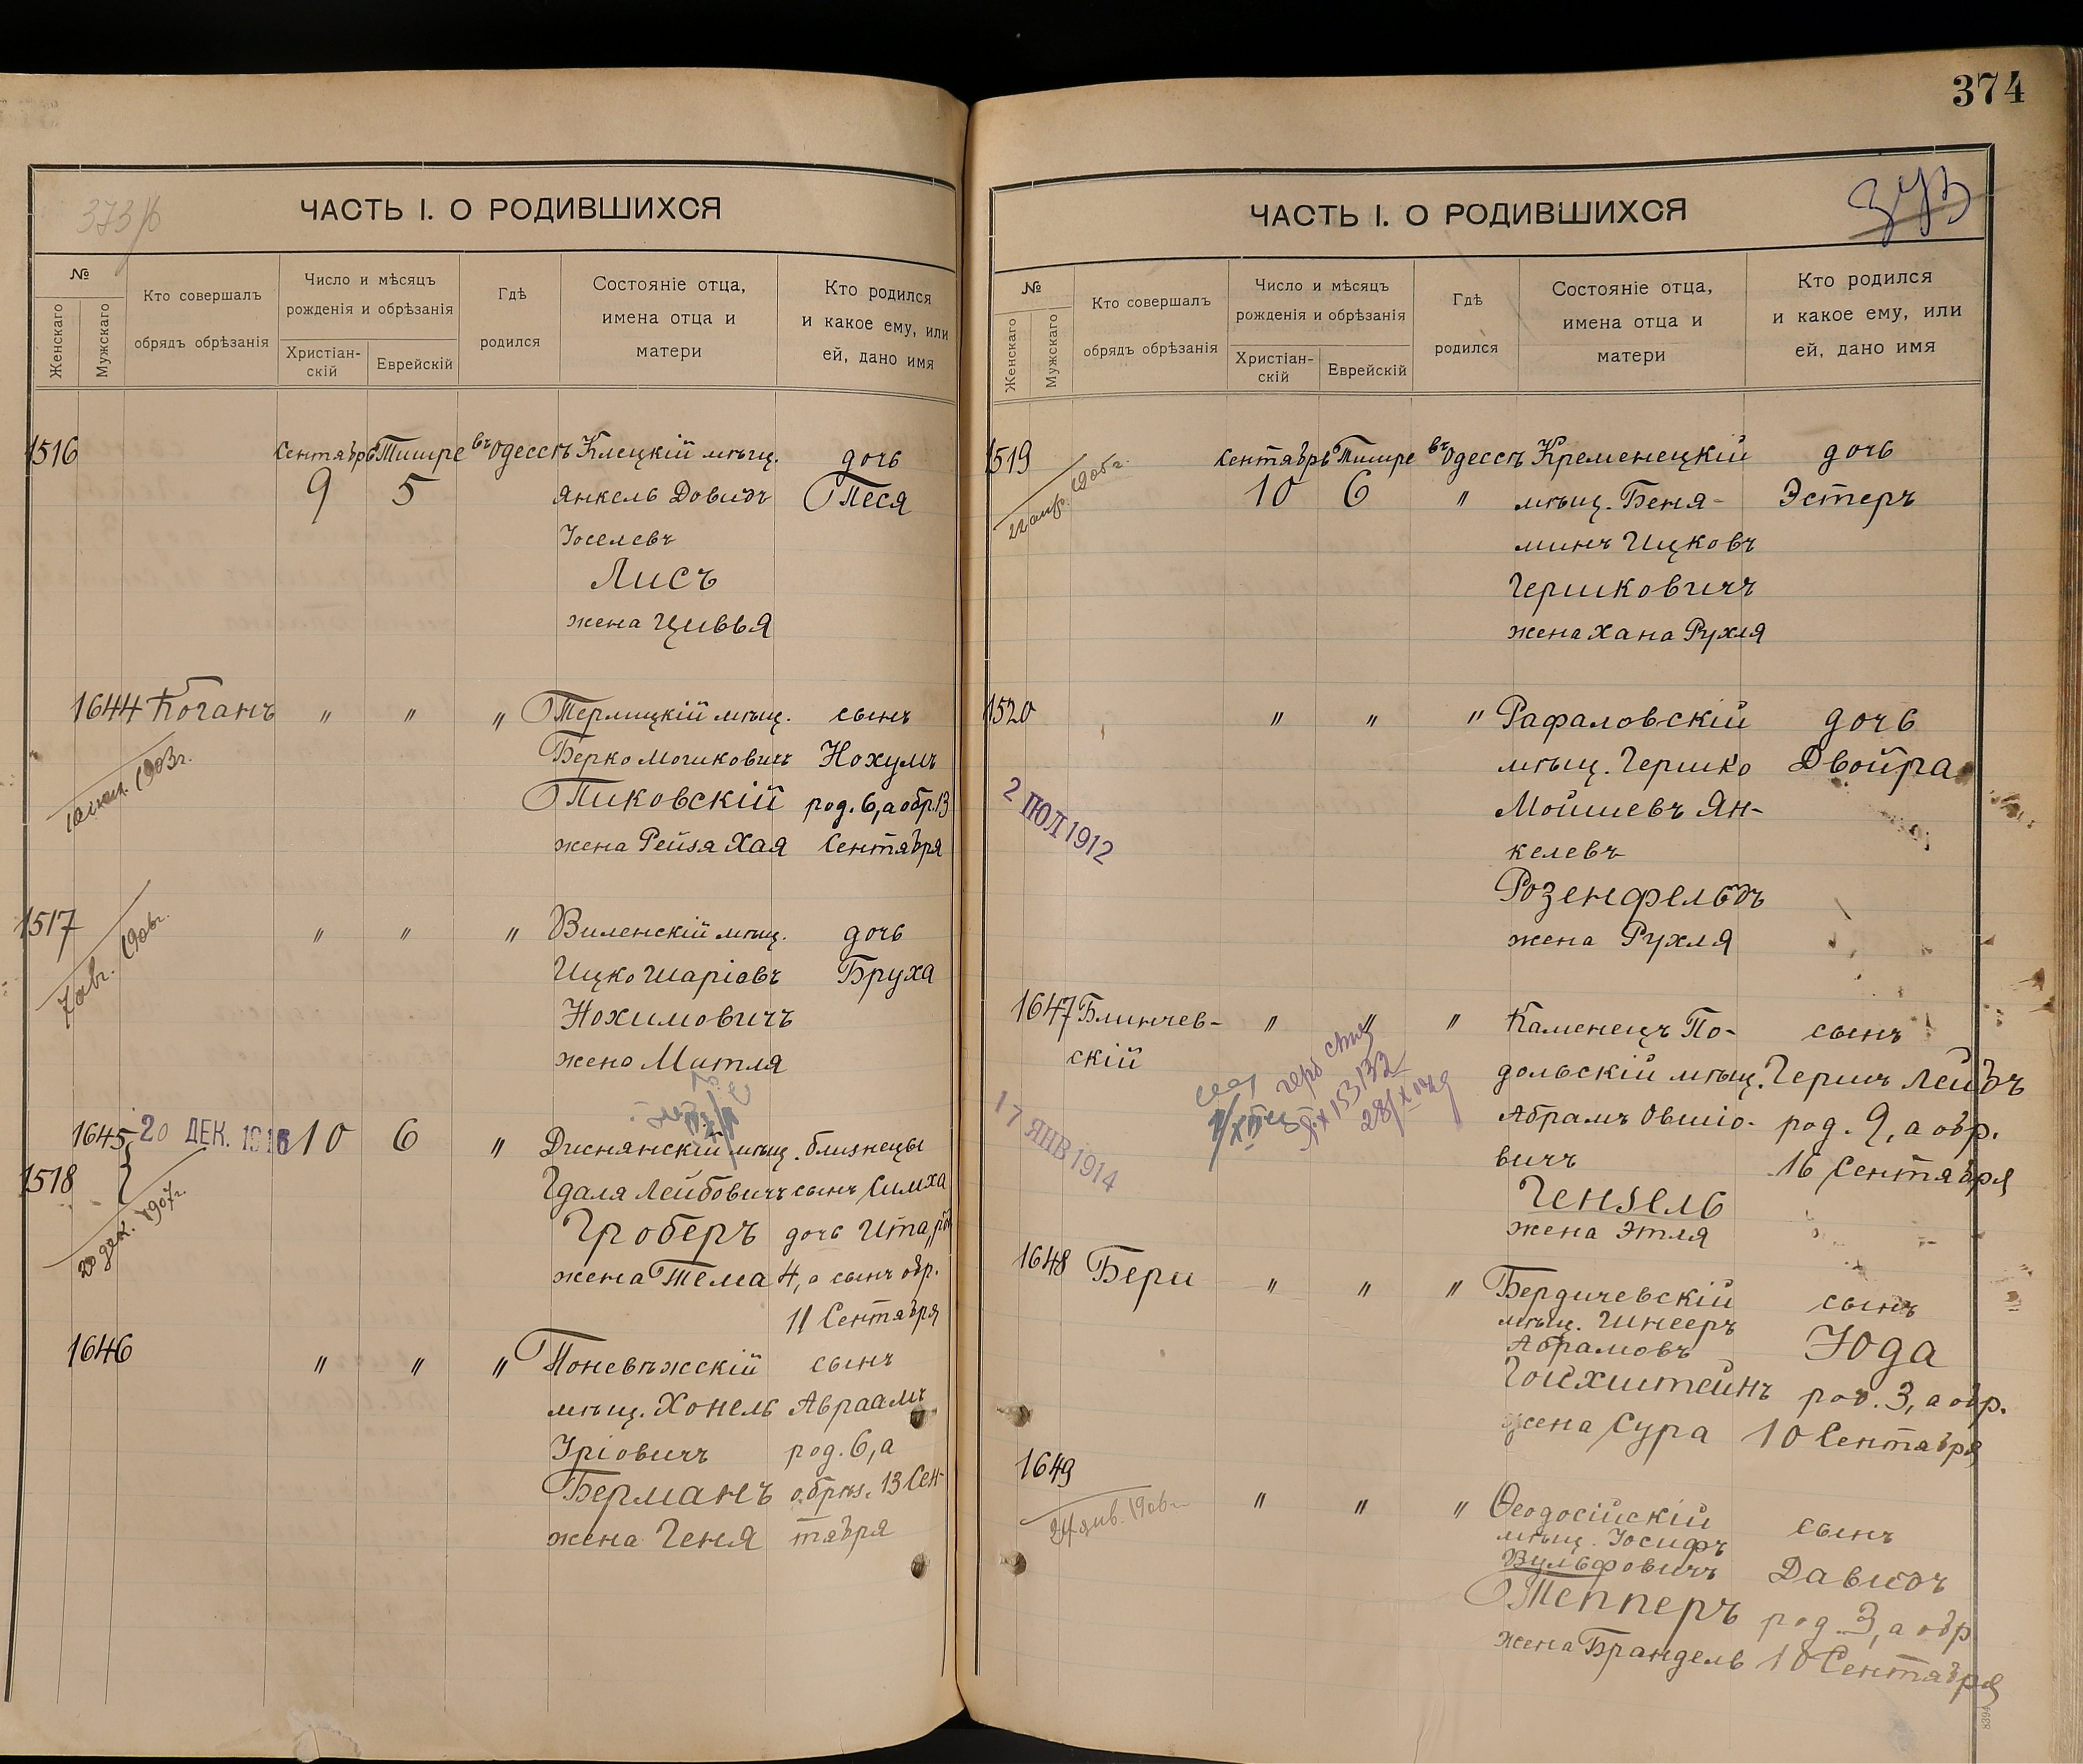 374
373
ЧАСТЬ I. О РОДИВШИХСЯ
№
Женскаго
Мужскаго
Кто совершалъ
обрядъ обрѣзанія
Число и мѣсяцъ
рожденія и обрѣзанія
Христіан-
скій
Еврейскій
Гдѣ
родился
Состояніе отца,
имена отца и
матери
Кто родился
и какое ему, или
ей, дано имя
1516 Сентябрь Тишре въ Одессѣ Клецкій мѣщ. дочь
9 5 Янкель Довидъ Песя
Іоселевъ
Лисъ
жена Цивья
1644 Коганъ " " " Терлицкій мѣщ. сынъ
Берко Мошковичъ Нохумъ
Пиковскій род. 6, а обр. 13
жена Рейзя Хая Сентября
1903г.
1517 " " " Виленскій мѣщ. дочь
Ицко Шаріевъ Бруха
Нохимовичъ
жена Митля
7 авг. 1906г.
1645 20 ДЕК. 10 6 " Диснянскій мѣщ. близнецы
1518 Гдаля Лейбовичъ сынъ Симха
Гроберъ дочь Ита, род.
жена Тема 4, а сынъ обр.
11 Сентября
20 дек. 1907г.
1646 " " " Поневѣжскій сынъ
мѣщ. Хонель Авраамъ
Уріовичъ род. 6, а
Берманъ обрѣз. 13 Сен-
жена Геня тября
ЧАСТЬ I. О РОДИВШИХСЯ
№
Женскаго
Мужскаго
Кто совершалъ
обрядъ обрѣзанія
Число и мѣсяцъ
рожденія и обрѣзанія
Христіан-
скій
Еврейскій
Гдѣ
родился
Состояніе отца,
имена отца и
матери
Кто родился
и какое ему, или
ей, дано имя
1519 Сентябрь Тишре въ Одессѣ Кременецкій дочь
10 6 " мѣщ. Беня- Эстеръ
минъ Ицковъ
Гершковичъ
жена Хана Рухля
22 апр. 1906г.
1520 " " " Рафаловскій дочь
мѣщ. Гершко Двойра
Мойшевъ Ян-
келевъ
Розенфельдъ
жена Рухля
2 ІЮЛ 1912
1647 Блинчев- " " " Каменецъ По- сынъ
скій дольскій мѣщ. Гершъ Лейбъ
Абрамъ Овшіо- род. 9, а обр.
вичъ 16 Сентября
Гензель
жена Этля
17 ЯНВ 1914
1648 Бери " " " Бердичевскій сынъ
мѣщ. Шнееръ
Абрамовъ Юда
Гойхштейнъ род. 3, а обр.
жена Сура 10 Сентября
1649 " " " Ѳеодосійскій сынъ
мѣщ. Іосифъ
Вульфовичъ Давидъ
Тепперъ род. 3, а обр
жена Брандель 10 Сентября
24 янв. 1906г.